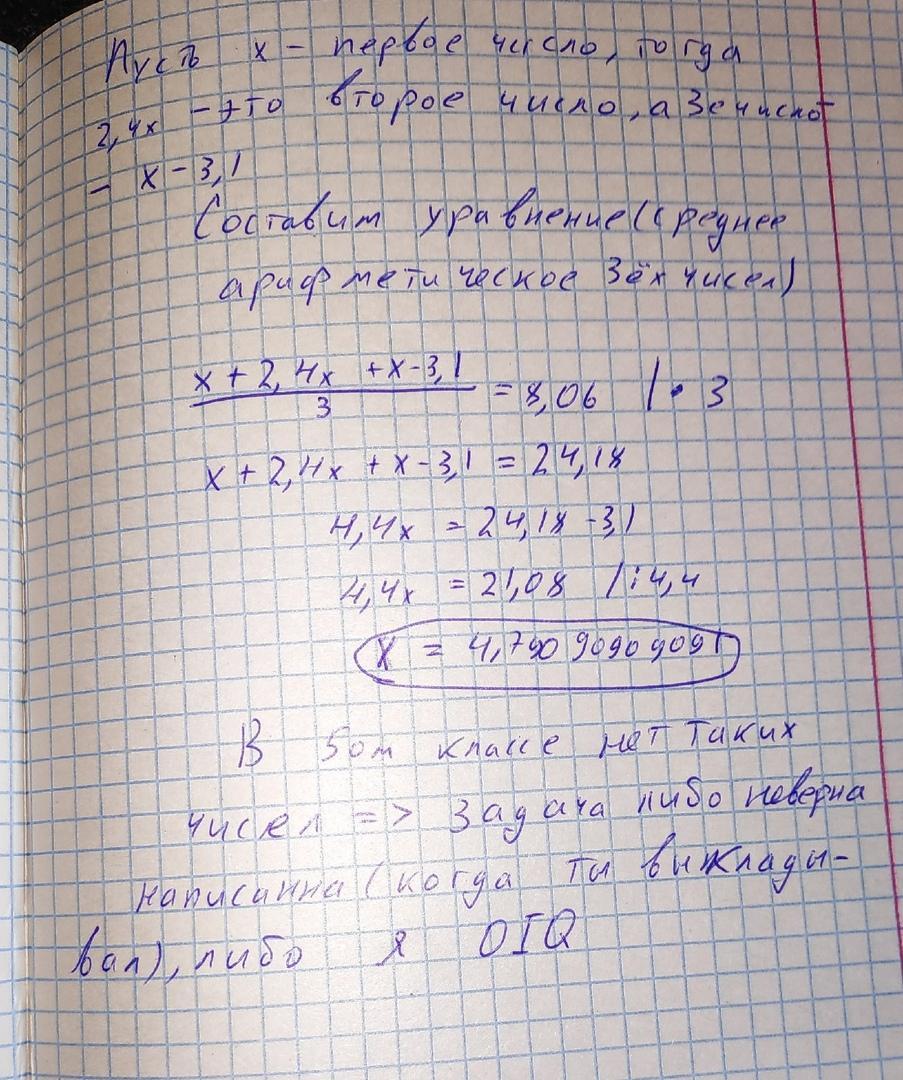 Пусть x - первое число, тогда
2,4x - это второе число, а 3е число
- x - 3,1
Составим уравнение (среднее
арифметическое 3ёх чисел)
x + 2,4x + x - 3,1
3
= 8,06 | • 3
x + 2,4x + x - 3,1 = 24,18
4,4x = 24,18 - 3,1
4,4x = 21,08 | : 4,4
x = 4,7909090909
В 5ом классе нет таких
чисел => задача либо неверна
написанна (когда ты выклады-
вал), либо я 0IQ